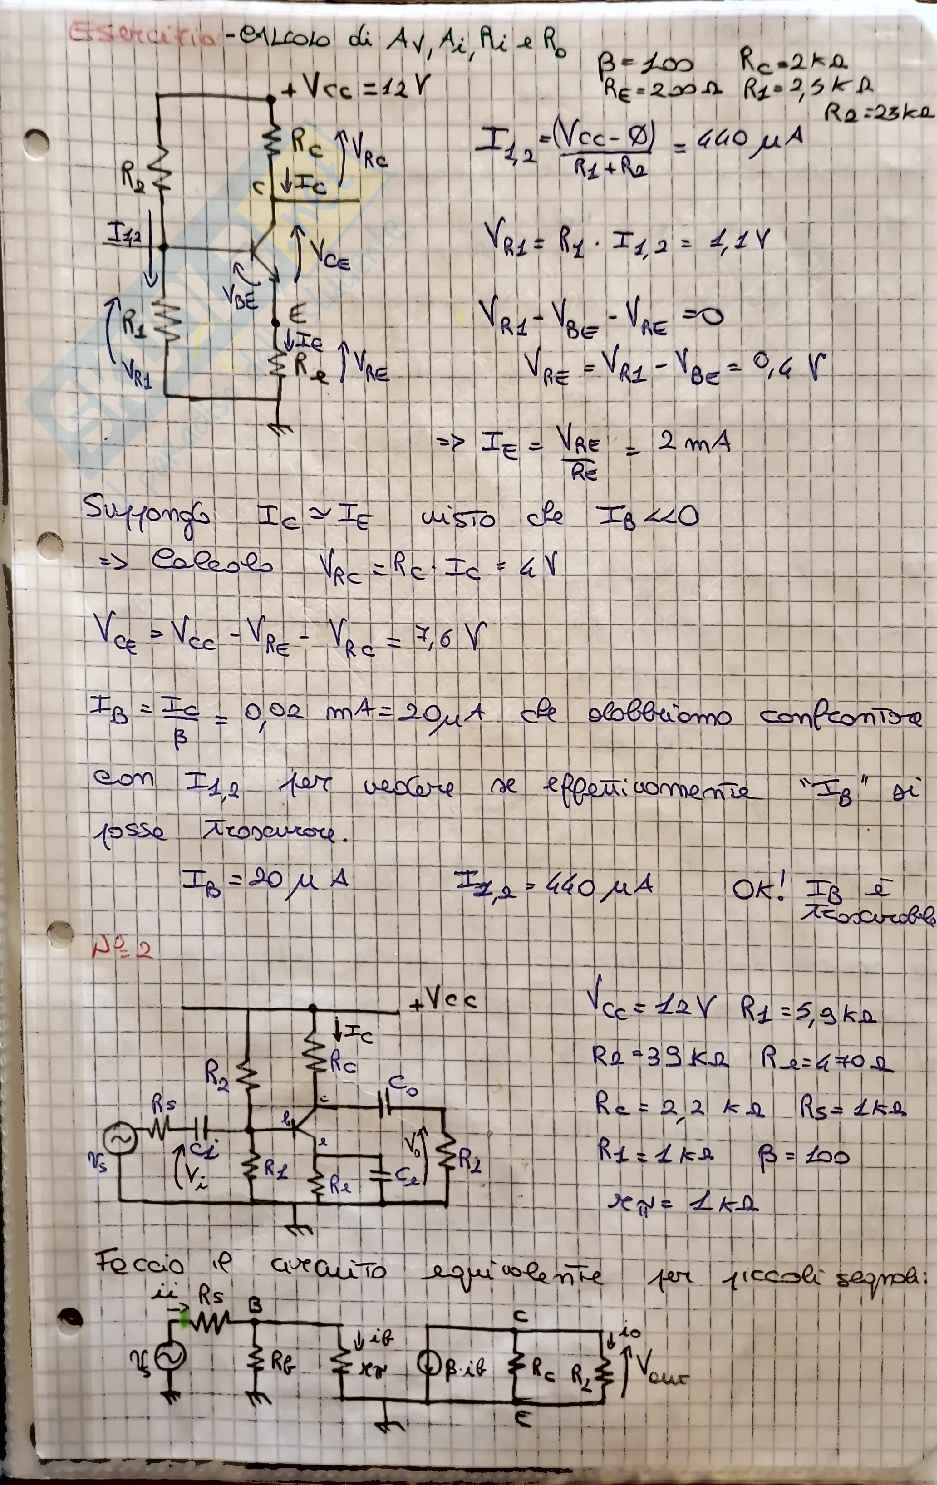 Esercizio - CALCOLO di Av, Ai, Ri e Ro
β = 100 Rc = 2 kΩ
RE = 200 Ω R1 = 2,5 kΩ
R2 = 23 kΩ
+ Vcc = 12 V
I1,2 = (Vcc - Ø) / R1 + R2 = 440 μA
Rc VRc
R2 C Ic
I1,2 VCE
VR1 = R1 · I1,2 = 1,1 V
VBE
E
R1 IE
VR1 Re VRE
VR1 - VBE - VRE = 0
VRE = VR1 - VBE = 0,4 V
=> IE = VRE / RE = 2 mA
Suppongo Ic ≃ IE visto che IB << 0
=> Calcolo VRc = Rc · Ic = 4 V
VCE = Vcc - VRE - VRc = 7,6 V
IB = Ic / β = 0,02 mA = 20 μA che dobbiamo confrontare
con I1,2 per vedere se effettivamente "IB" si
posse trascurare.
IB = 20 μA I1,2 = 440 μA OK! IB è
trascurabile
N° 2
+Vcc
Ic
R2 Rc Co
Rs c
b
Vs Ci e Vo
Vi R1 Re Ce RL
Vcc = 12 V R1 = 5,9 kΩ
R2 = 39 kΩ Re = 470 Ω
Rc = 2,2 kΩ Rs = 1 kΩ
R1 = 1 kΩ β = 100
rπ = 1 kΩ
Faccio il circuito equivalente per piccoli segnali:
ii Rs B C
ib io
Vs Rb rπ β·ib Rc RL Vout
E